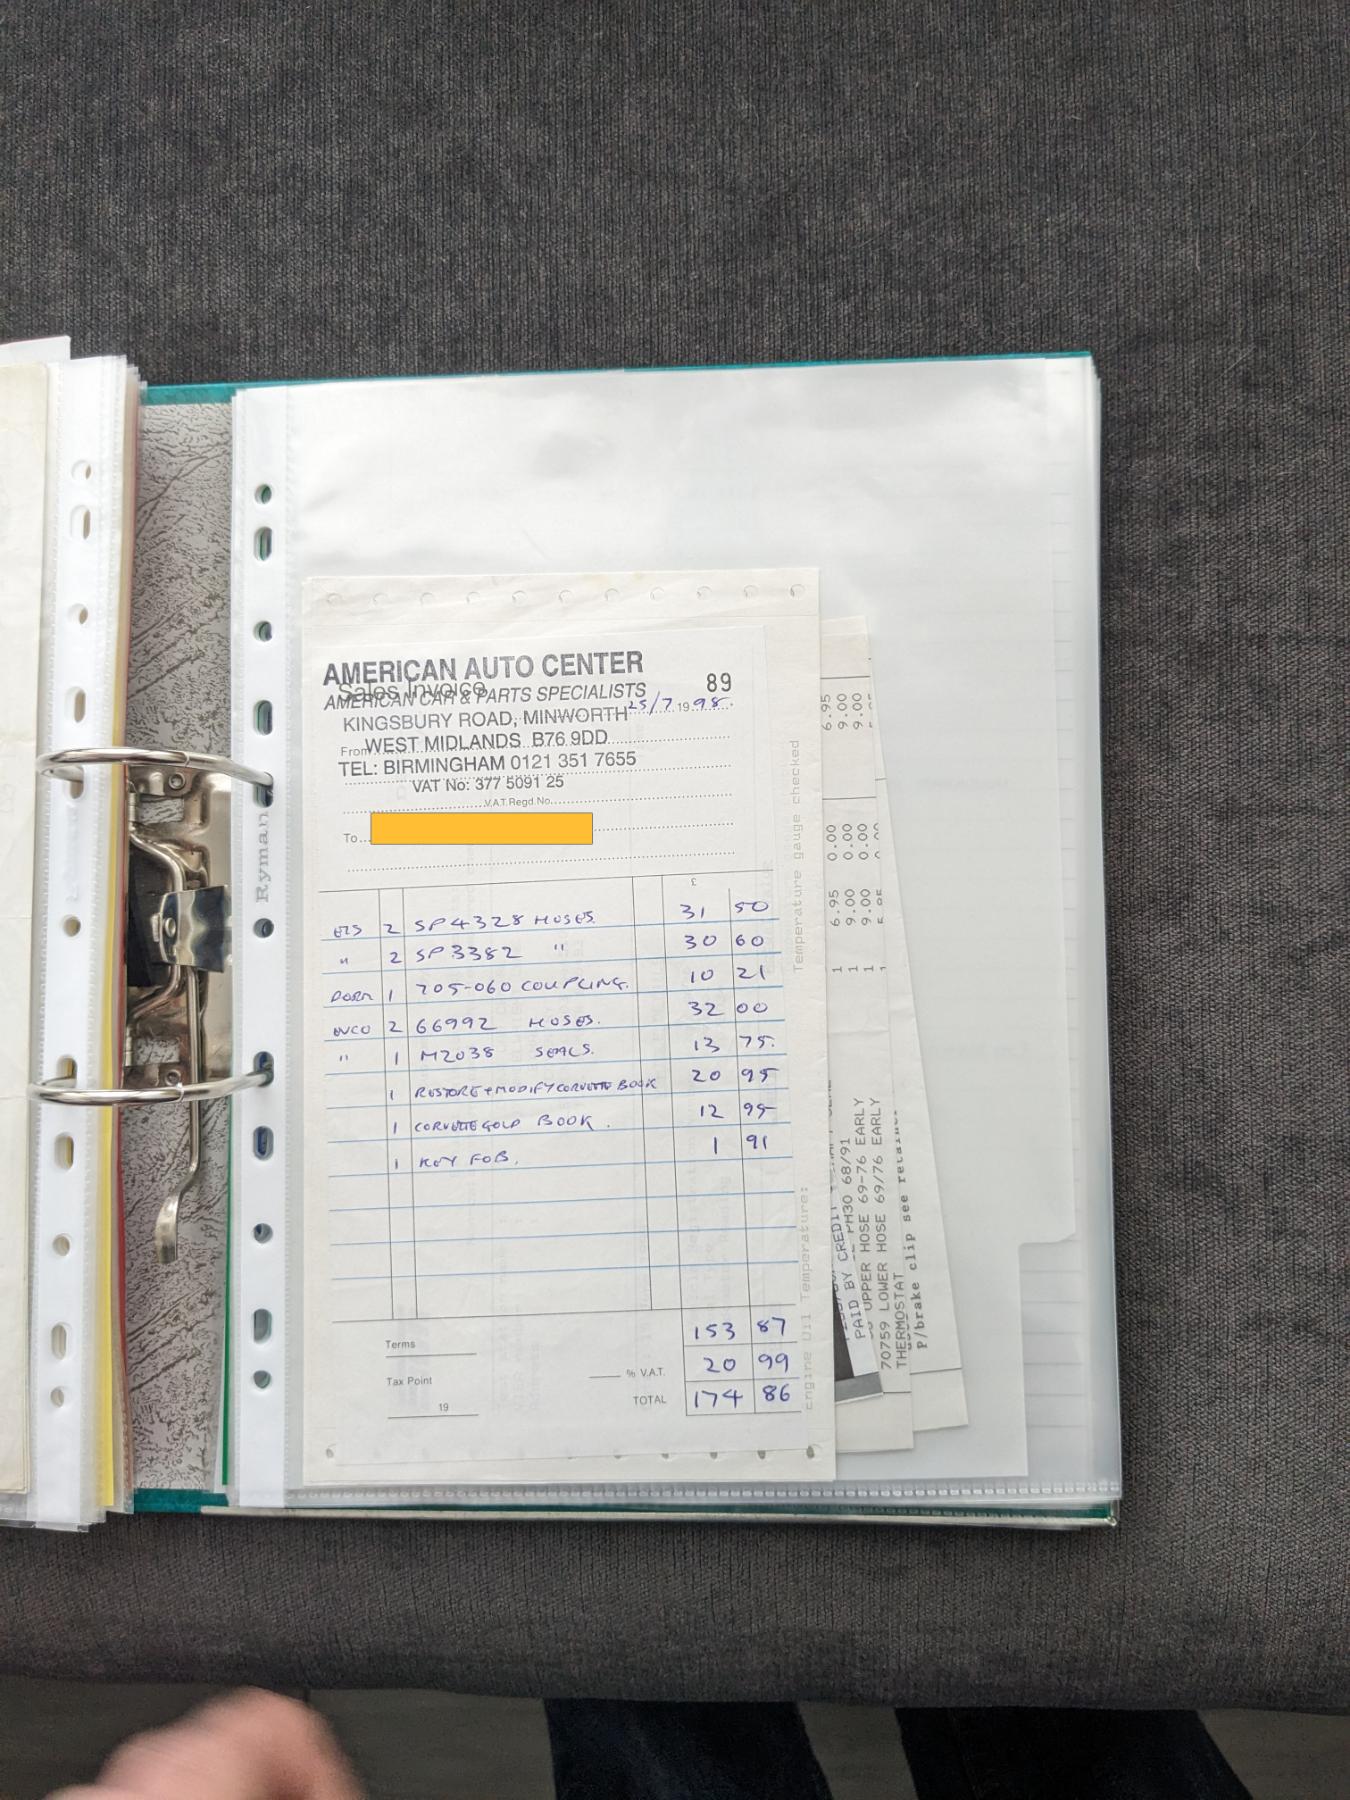 AMERICAN AUTO CENTER
Sales Invoice
89
AMERICAN CAR & PARTS SPECIALISTS
25/7 19 98
KINGSBURY ROAD, MINWORTH
From WEST MIDLANDS B76 9DD
TEL: BIRMINGHAM 0121 351 7655
VAT No: 377 5091 25
V.A.T. Regd. No.
To
£
2 SP4328 HOSES 31 50
" 2 SP3382 " 30 60
DORM 1 705-060 COUPLING. 10 21
2 66992 HOSES. 32 00
" 1 M2038 SEALS. 13 75.
1 RESTORE + MODIFY CORVETTE BOOK 20 95
1 CORVETTE GOLD BOOK. 12 95
1 KEY FOB. 1 91
153 87
Terms
% V.A.T. 20 99
Tax Point
TOTAL 174 86
19
Ryman
Temperature gauge checked
Engine Oil Temperature:
6.95 0.00 6.95 1
9.00 0.00 9.00 1
9.00 0.00 9.00 1
PAID BY CREDIT
PH30 68/91
UPPER HOSE 69-76 EARLY
70759 LOWER HOSE 69/76 EARLY
THERMOSTAT
P/brake clip see retainer